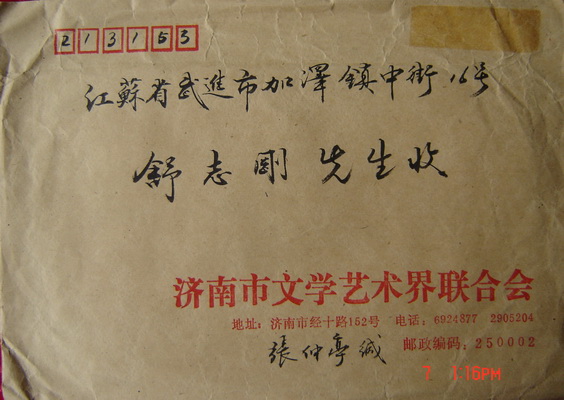 213153
江蘇省武進市加澤鎮中街16号
舒志剛 先生收
济南市文学艺术界联合会
地址：济南市经十路152号 电话：6924877 2905204
張仲亭缄 邮政编码：250002
7 1:16PM